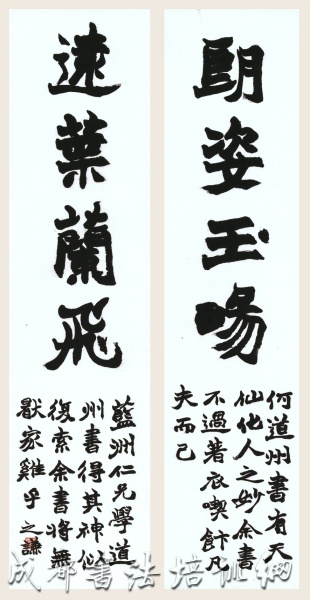 朗姿玉暘
何道州書有天
仙化人之妙余書
不過著衣喫飰凡
夫而已
遠葉蘭飛
藍洲仁兄學道
州書得其神似
復索余書將無
厭家雞乎之謙
成都書法培训網